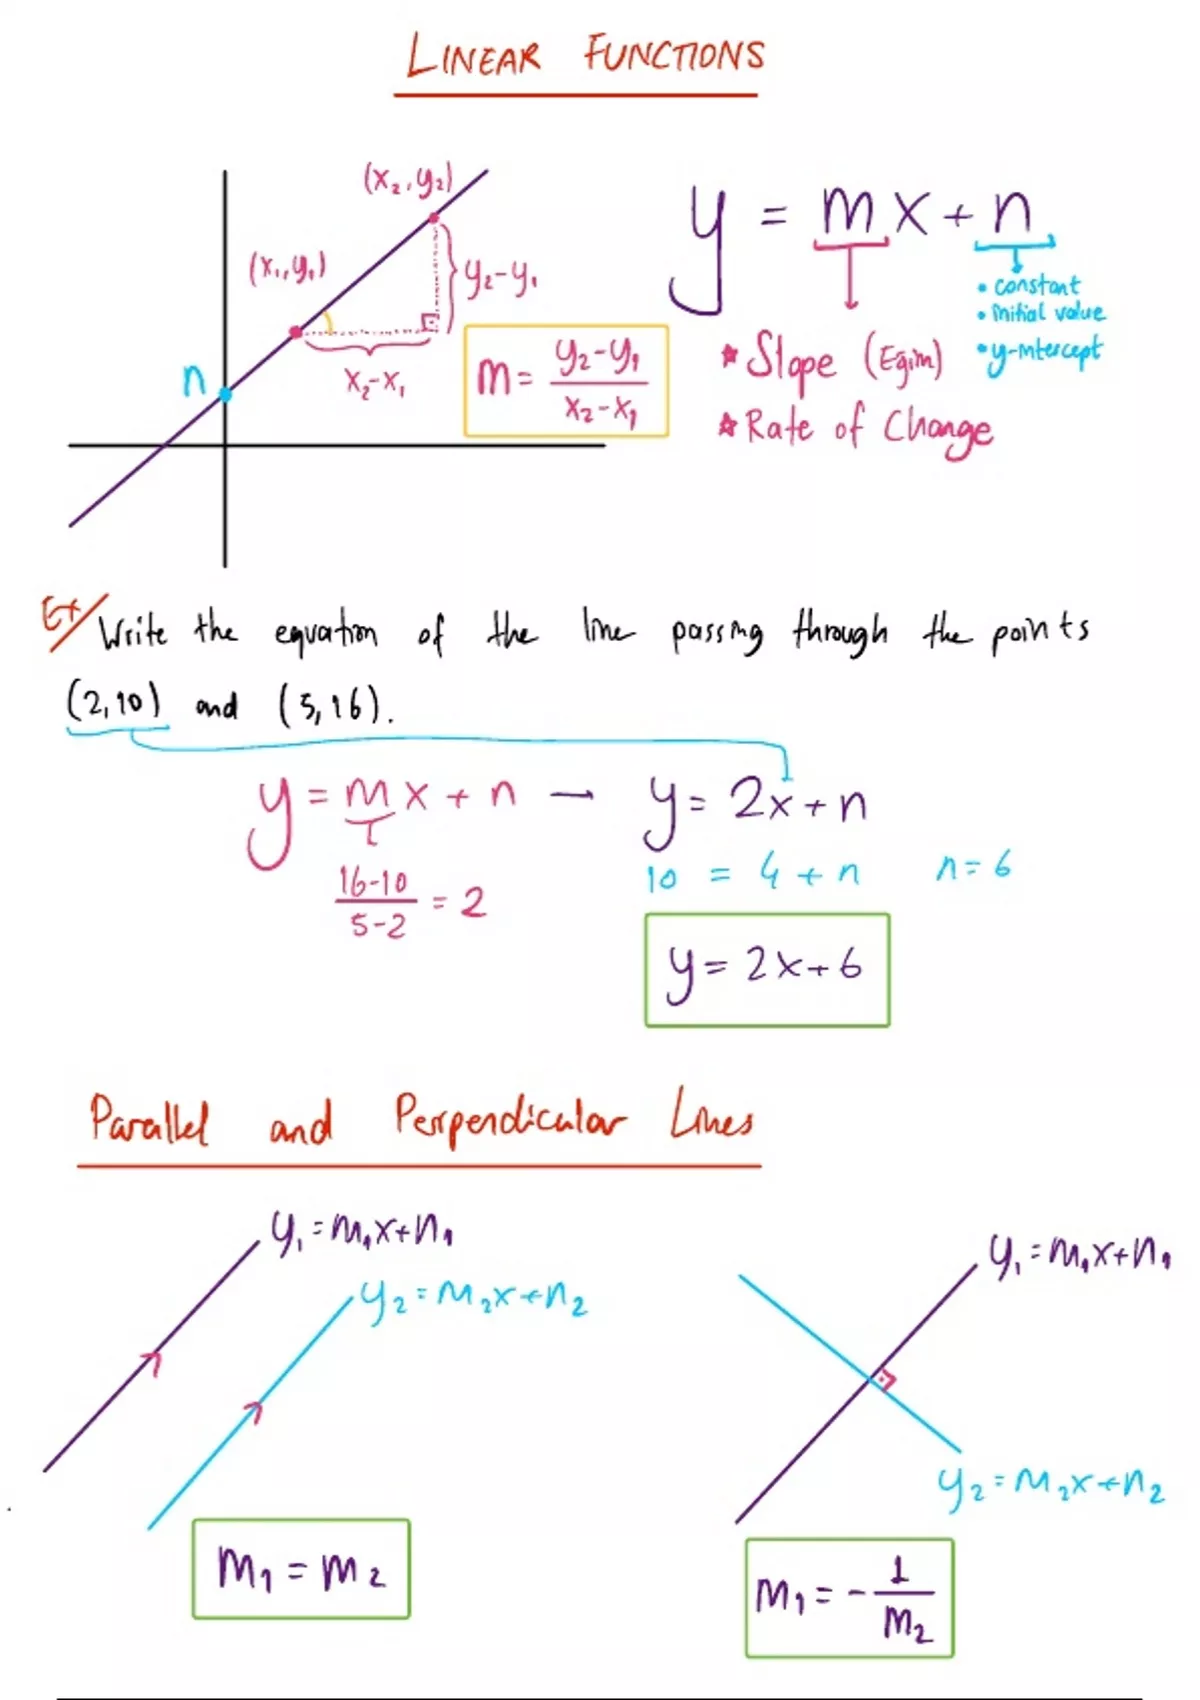 LINEAR FUNCTIONS
(x₂, y₂)
(x₁, y₁)
y₂-y₁
x₂-x₁
n
m = (y₂-y₁)/(x₂-x₁)
y = mx + n
• constant
• initial value
• y-intercept
★ Slope (Egim)
★ Rate of Change
Ex/ Write the equation of the line passing through the points
(2,10) and (5,16).
y = mx + n → y = 2x + n
(16-10)/(5-2) = 2
10 = 4 + n n = 6
y = 2x + 6
Parallel and Perpendicular Lines
y₁ = m₁x + n₁
y₂ = m₂x + n₂
m₁ = m₂
y₁ = m₁x + n₁
y₂ = m₂x + n₂
m₁ = - 1/m₂